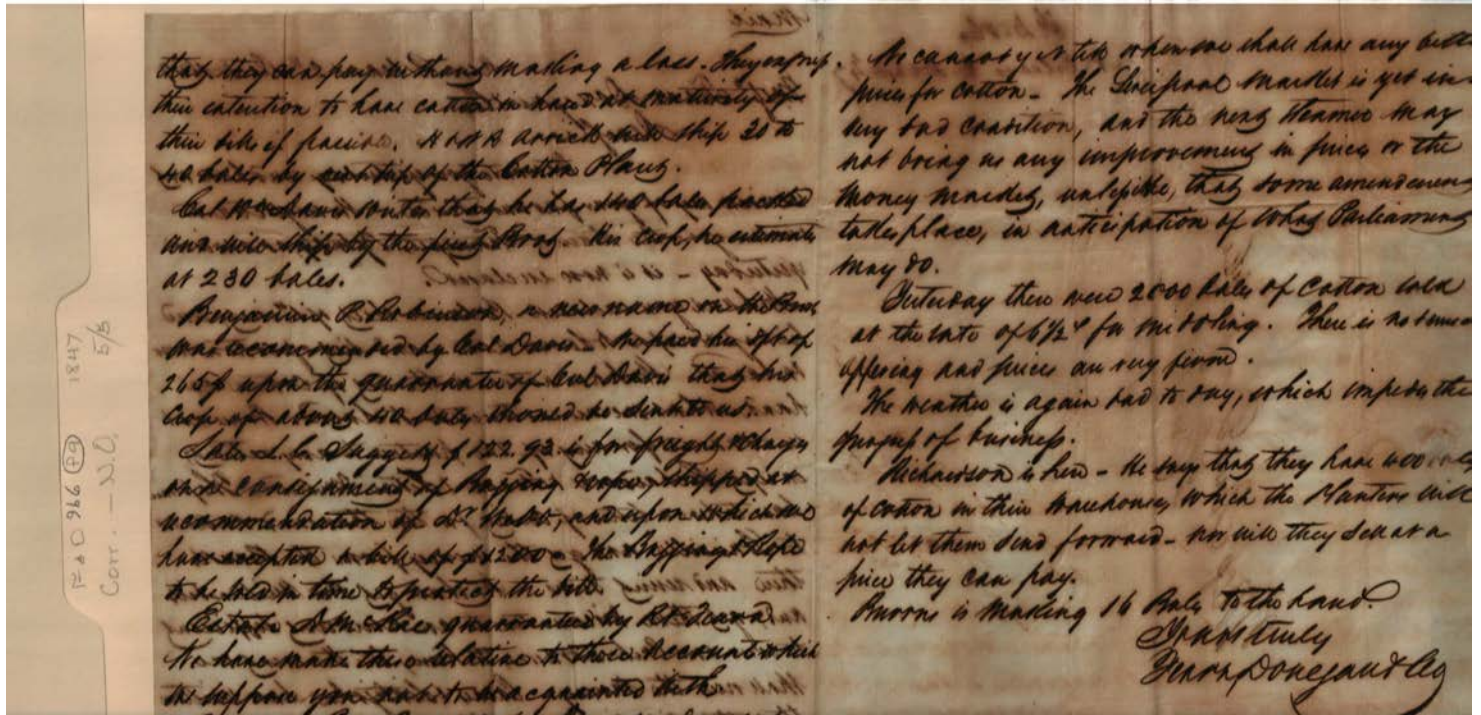 that they can pay without making a loss. They express
their intention to have cotton in hand at maturity of
their bills if possible. will ship 20 to
40 bales by next trip of the Cotton Plant.
Col Wm Davis writes that he has 140 bales packed
and will ship by the first Boat. His crop, he estimates
at 230 bales.
Benjamin P. Robinson, a new name on the Books
was recommended by Col Davis. We paid his dft of
265$ upon the guarantee of Col Davis that his
crop of about 40 bales should be sent to us.
L. C. Suggett $122.93 is for freight & Charges
on a consignment of Bagging & rope, shipped at
recommendation of Dr. Webb, and upon which we
have accepted a bill of $1200 - The Bagging & Rope
to be sold in time to protect the bill
Estate D. McRae guaranteed by
We have make these relative to those Accounts which
we suppose you not to be acquainted with
We cannot yet tell when we shall have any better
prices for cotton - The Liverpool market is yet in
very bad condition, and the next Steamer may
not bring us any improvement in prices or the
money market, unless it be, that some amendment
takes place, in anticipation of what Parliament
may do.
Yesterday there were 2000 bales of cotton sold
at the rate of 6 1/2 for middling. There is no
offering and prices are very firm.
The weather is again bad to day, which impedes the
progress of business.
Richardson is here - He says that they have 400 bales
of cotton in their warehouses, which the Planters will
not let them send forward - nor will they sell at a
price they can pay.
is making 16 Bales to the hand.
Yours truly
Fearn Donegan & Co
F & D 966 (P9) 1847
Corr. - N.O. 5/5